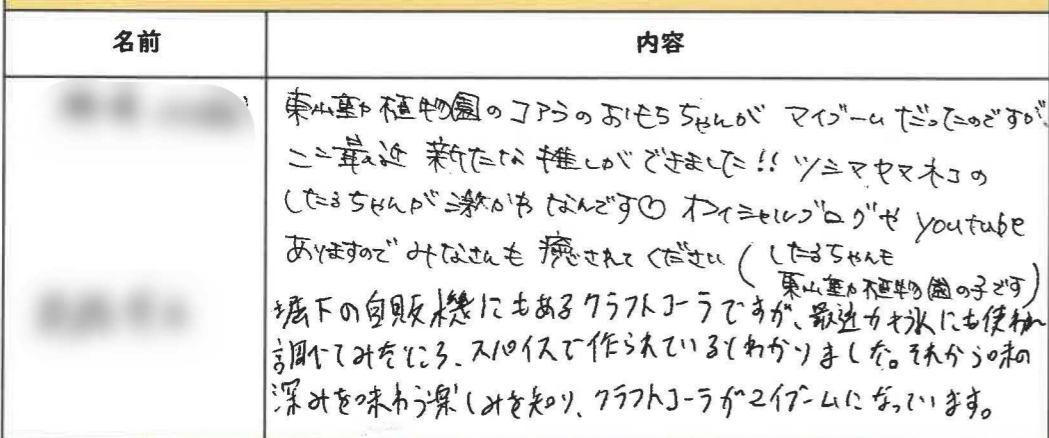 名前
内容
東山動植物園のコアラのおもちちゃんがマイブームだったのですが、
ここ最近 新たな推しができました!! ツシマヤマネコの
したるちゃんが激かわなんです♡ オフィシャルブログや youtube
ありますので みなさんも 癒されてください(したるちゃんも
東山動植物園の子です)
堀下の自販機にもあるクラフトコーラですが、最近かき氷にも使われ
調べてみたところ、スパイスで作られているとわかりました。それから味の
深みを味わう楽しみを知り、クラフトコーラがマイブームになっています。